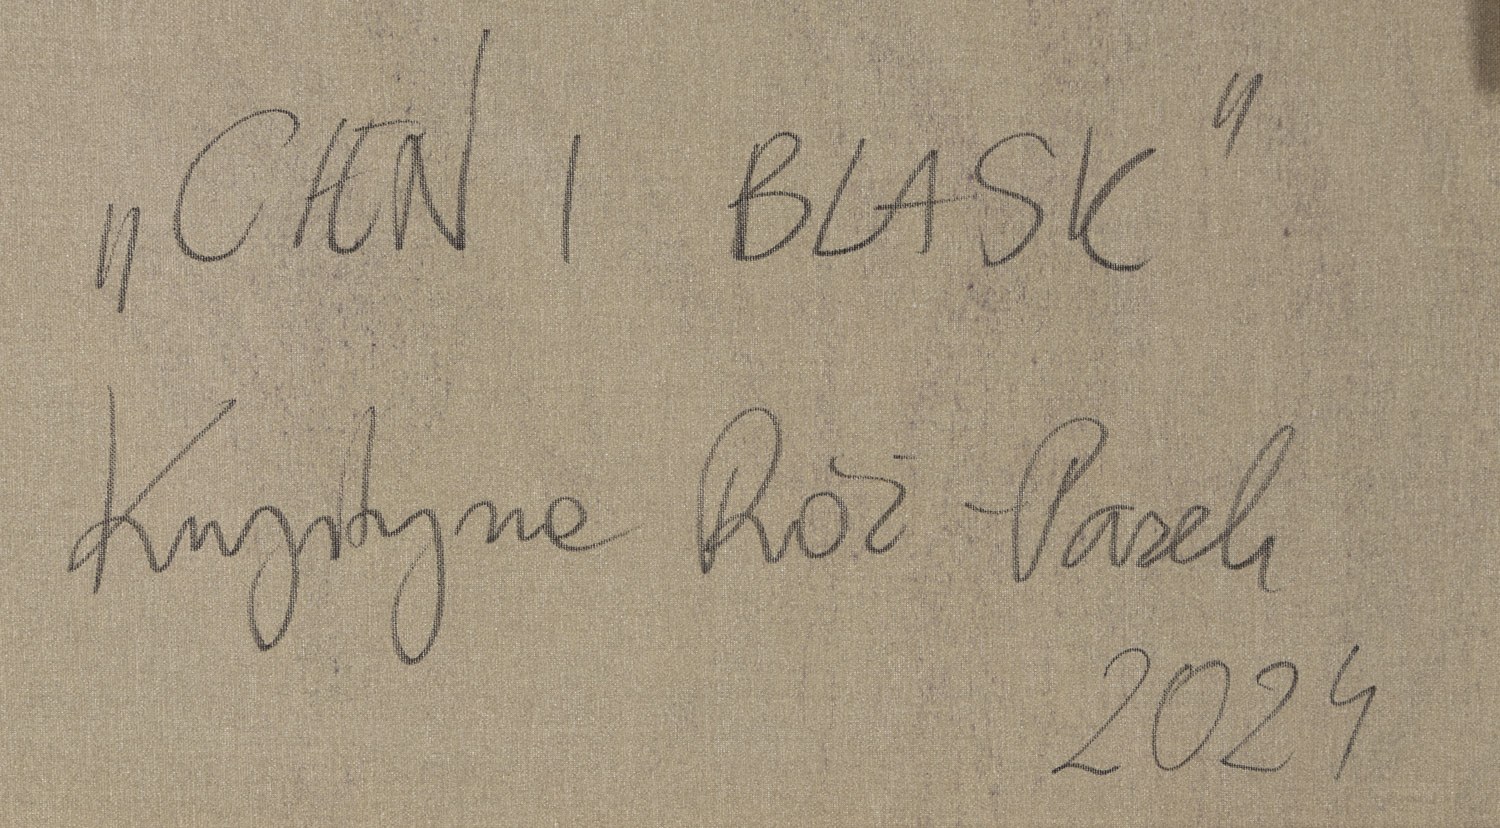 „CIEŃ I BLASK”
Krystyna Róż-Pasek
2024